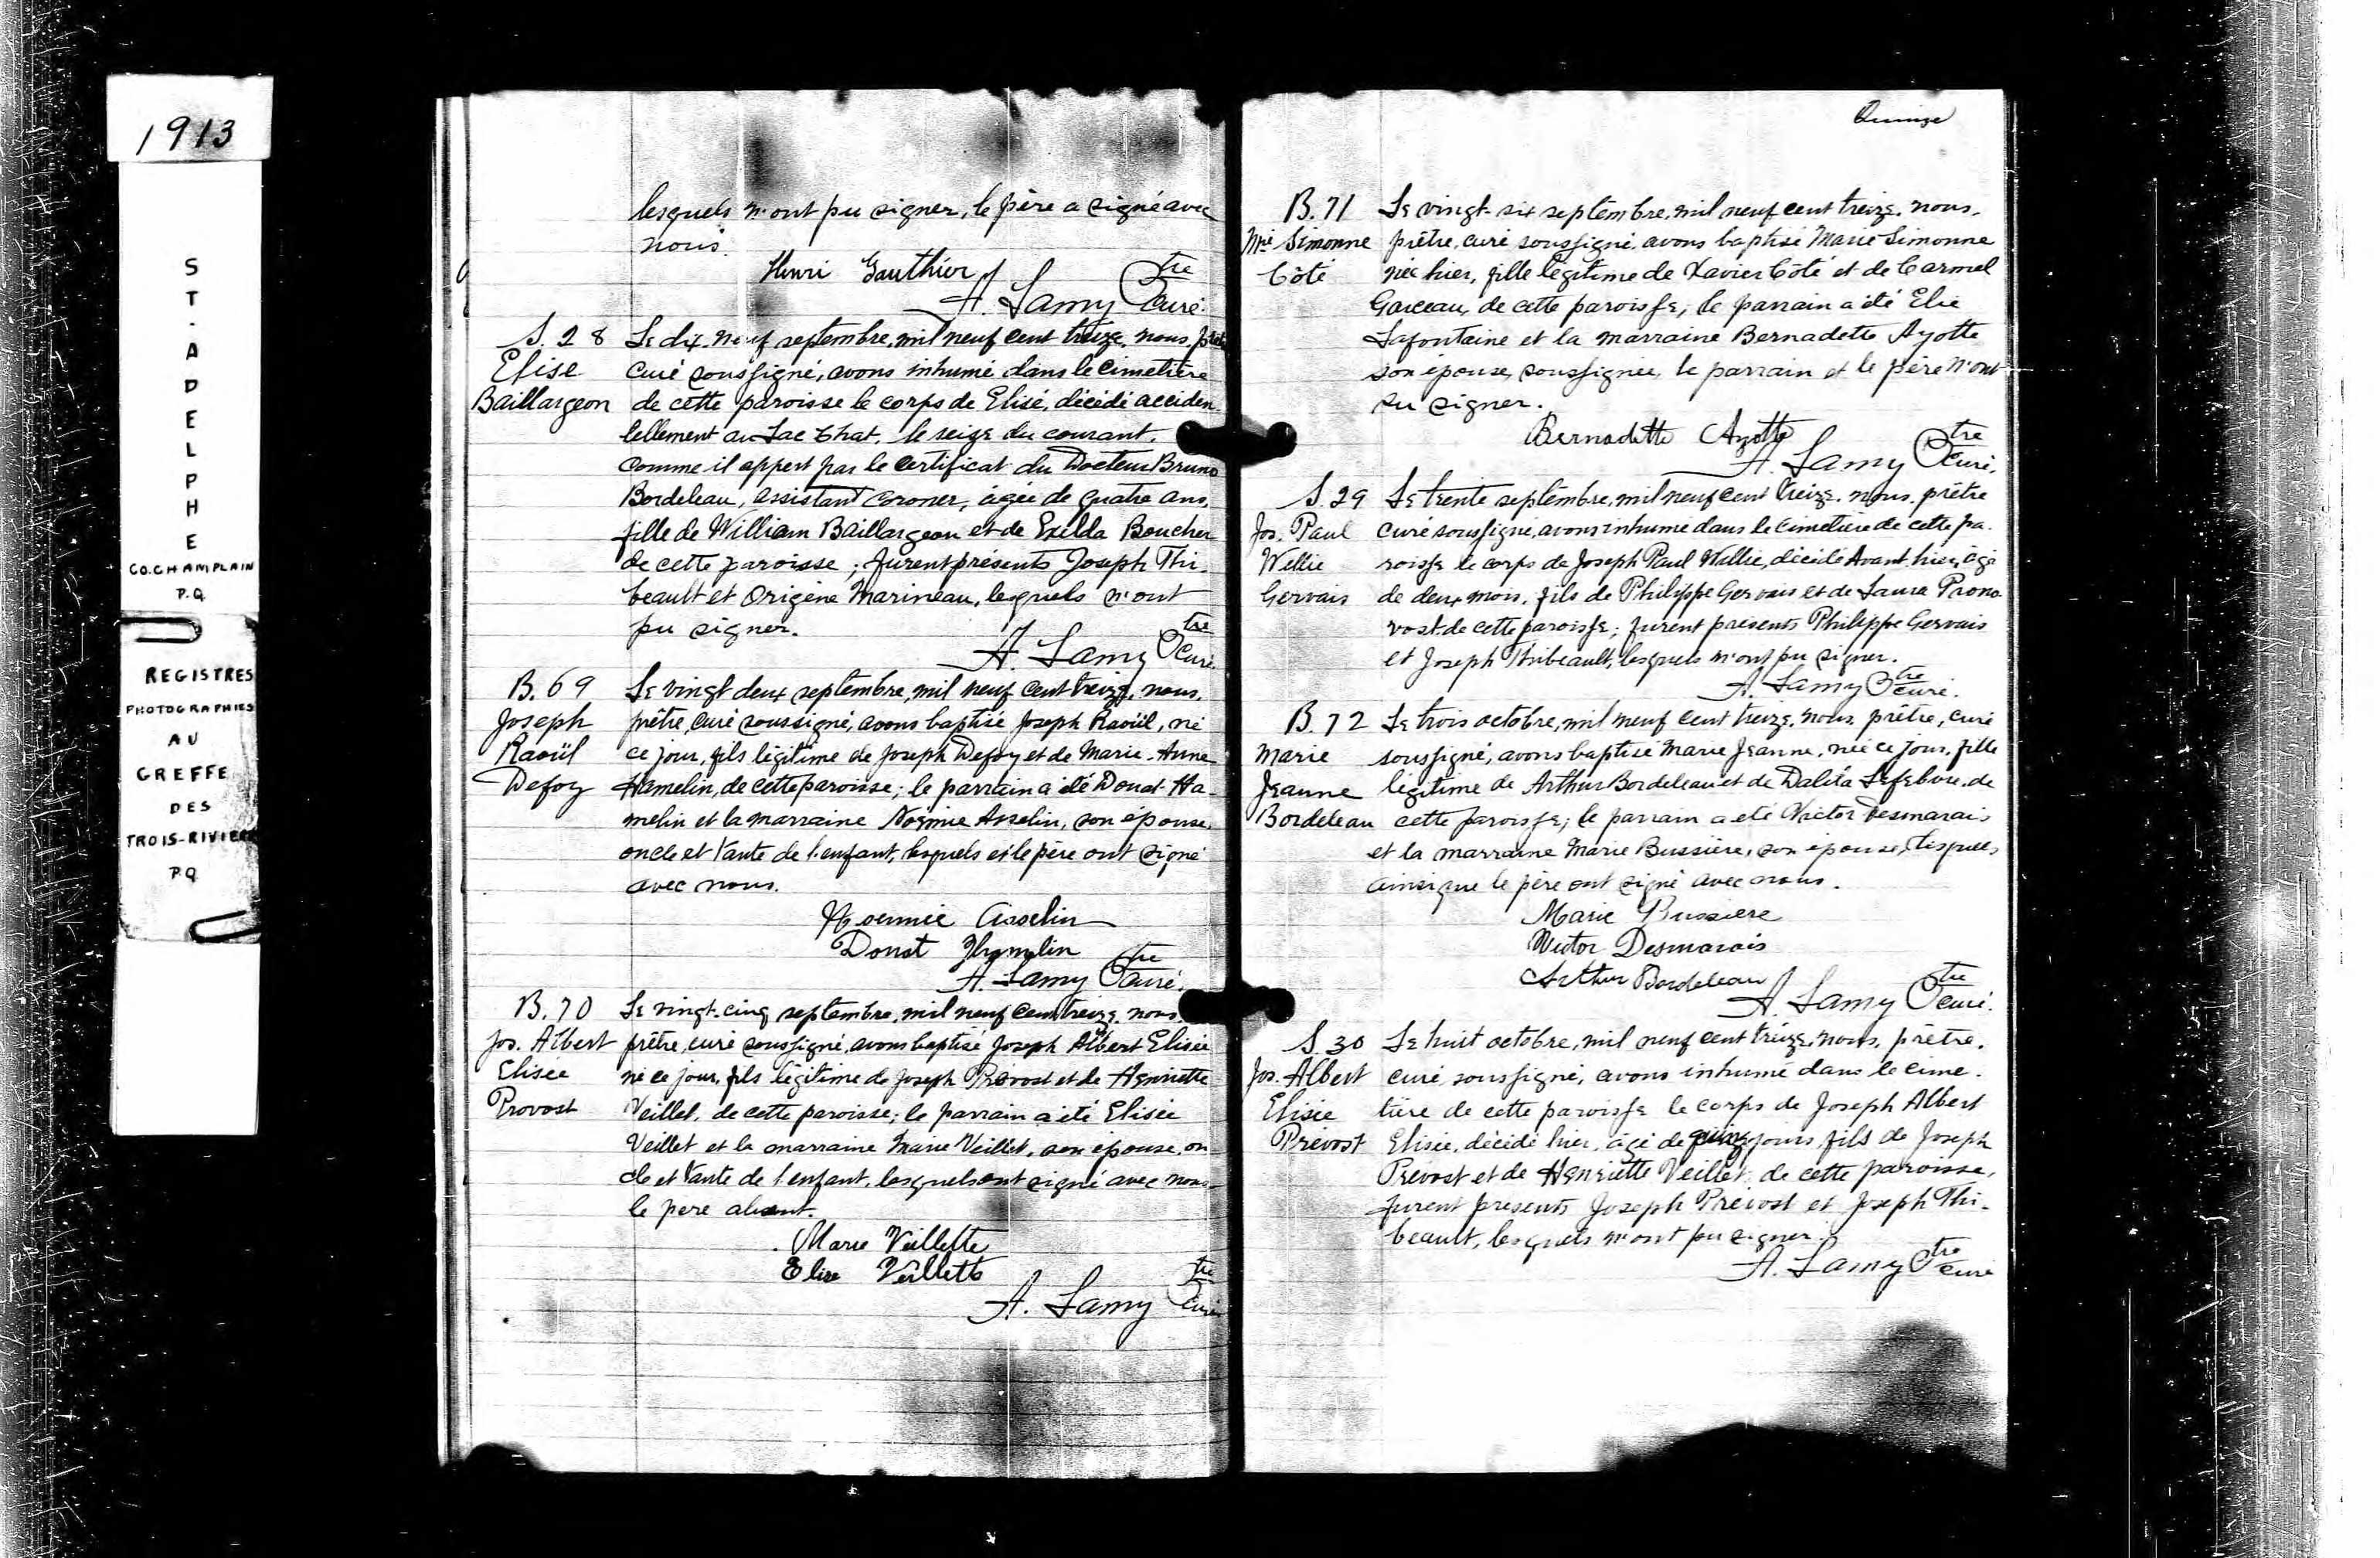 1913
ST. ADELPHE
CO. CHAMPLAIN
P.Q.
REGISTRES
PHOTOGRAPHIES
AU
GREFFE
DES
TROIS-RIVIERE
P.Q.
lesquels n'ont pu signer, le père a signé avec
nous.
Henri Gauthier
A. Lamy Ptre Curé.
S. 28
Elise
Baillargeon
Le dix-neuf septembre, mil neuf cent treize, nous, prêtre
Curé soussigné, avons inhumé dans le Cimetière
de cette paroisse le corps de Elise, décédé acciden-
tellement au Lac Chat, le seize du courant,
Comme il appert par le Certificat du Docteur Bruno
Bordeleau, assistant Coroner, âgée de quatre ans,
fille de William Baillargeon et de Exilda Boucher
de cette paroisse ; furent présents Joseph Thi-
beault et Origène Marineau, lesquels n'ont
pu signer.
A. Lamy Ptre Curé
B. 69
Joseph
Raoül
Defoy
Le vingt deux septembre, mil neuf cent treize, nous,
prêtre, curé soussigné, avons baptisé Joseph Raoül, né
ce jour, fils légitime de Joseph Defoy et de Marie-Anne
Hamelin, de cette paroisse ; le parrain a été Donat Ha-
melin et la marraine Noëmie Asselin, son épouse,
oncle et tante de l'enfant, lesquels et le père ont signé
avec nous.
Noemie Asselin
Donat Hamelin
A. Lamy Ptre Curé.
B. 70
Jos. Albert
Elisée
Provost
Le vingt-cinq septembre, mil neuf cent treize, nous,
prêtre, curé soussigné, avons baptisé Joseph Albert Elisée
né ce jour, fils légitime de Joseph Provost et de Henriette
Veillet, de cette paroisse ; le parrain a été Elisée
Veillet et la marraine Marie Veillet, son épouse, on
cle et tante de l'enfant, lesquels ont signé avec nous
le père absent.
Marie Veillette
Elise Veillette
A. Lamy Ptre Curé
Quinze
B. 71
Mie Simonne
Côté
Le vingt-six septembre, mil neuf cent treize, nous,
prêtre, curé soussigné, avons baptisé Marie Simonne
née hier, fille légitime de Xavier Côté et de Carmel
Garceau, de cette paroisse, le parrain a été Elie
Lafontaine et la marraine Bernadette Ayotte
son épouse, soussignée, le parrain et le père n'ont
su signer.
Bernadette Ayotte
A. Lamy Ptre Curé.
S. 29
Jos. Paul
Wellie
Gervais
Le trente septembre, mil neuf cent treize, nous, prêtre
Curé soussigné, avons inhumé dans le Cimetière de cette pa-
roisse le corps de Joseph Paul Wallie, décédé Avant-hier, âgé
de deux mois, fils de Philippe Gervais et de Laura Prono-
vost de cette paroisse ; furent présents Philippe Gervais
et Joseph Thibeault, lesquels n'ont pu signer.
A. Lamy Ptre curé.
B. 72
Marie
Jeanne
Bordeleau
Le trois octobre, mil neuf cent treize, nous, prêtre, curé
soussigné, avons baptisé Marie Jeanne, née ce jour, fille
légitime de Arthur Bordeleau et de Dalila Lefebvre, de
cette paroisse ; le parrain a été Victor Desmarais
et la marraine Marie Bussière, son épouse, lesquels
ainsi que le père ont signé avec nous.
Marie Bussiere
Victor Desmarais
Arthur Bordeleau
A. Lamy Ptre curé.
S. 30
Jos. Albert
Elisée
Prévost
Le huit octobre, mil neuf cent treize, nous, prêtre,
curé soussigné, avons inhumé dans le cime-
tière de cette paroisse le corps de Joseph Albert
Elisée, décédé hier, âgé de quinze jours, fils de Joseph
Prévost et de Henriette Veillet, de cette paroisse,
furent présents Joseph Prévost et Joseph Thi-
beault, lesquels n'ont pu signer.
A. Lamy Ptre curé